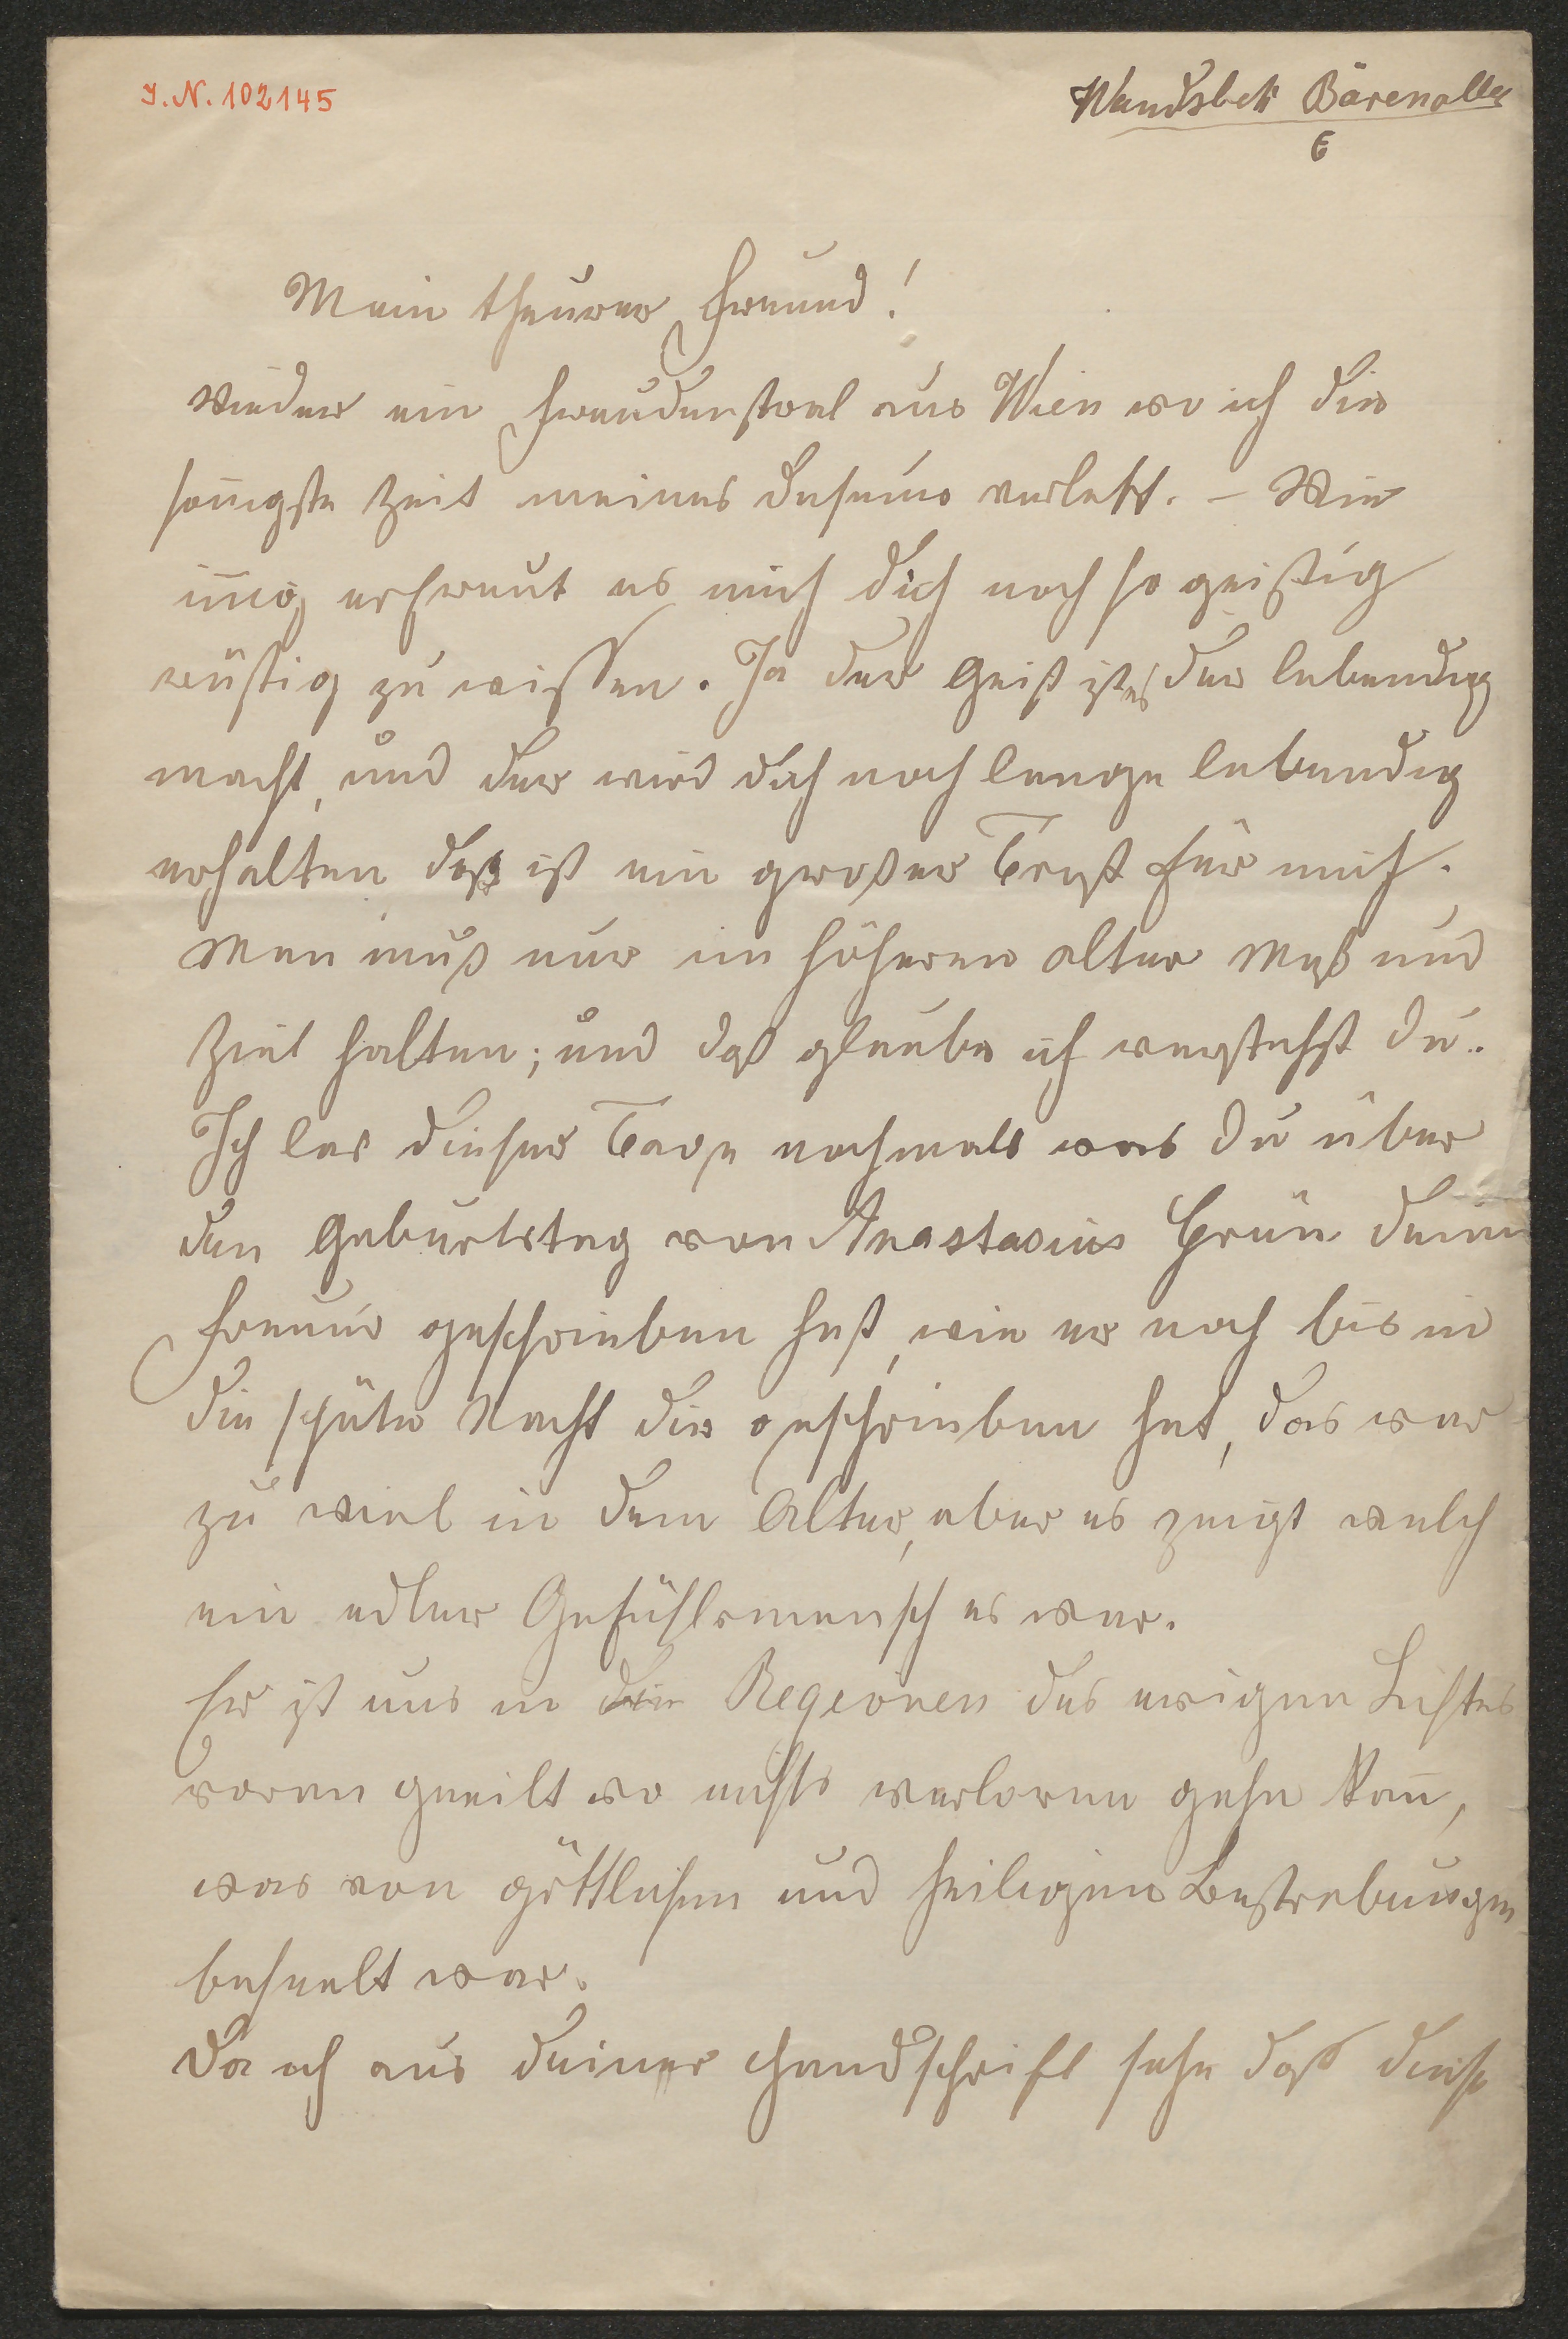 I.N. 102145
Wandsbek Bärenallee
6
Mein theurer Freund!
Wieder ein Freudenstral aus Wien wo ich die
soñigste Zeit meines Daseins verlebt. – Wie
iñig erfreut es mich dich noch so geistig
rüstig zu wissen. Ja der Geist ist es der lebendig
macht, und der wird dich noch lange lebendig
erhalten daß ist ein großer Trost für mich.
Man muß nur im höheren alter Maß und
Ziel halten; und daß glaube ich verstehst du.
Ich las dieser Tage nochmals was du über
den Geburtstag von Anastasius Grün deinen
Freund geschrieben hast, wie er noch bis in
die späte Nacht dir geschrieben hat, das war
zu viel in dem Alter, aber es zeigt welch
ein edler Gefühlsmensch es war.
Er ist uns in die Regeionen des ewigen Lichtes
voran geeilt wo nichts verloren gehn kañ,
was von göttlichen und heiligen Bestrebungen
beseelt war.
Da ich aus deiner Handschrift sehe daß diese